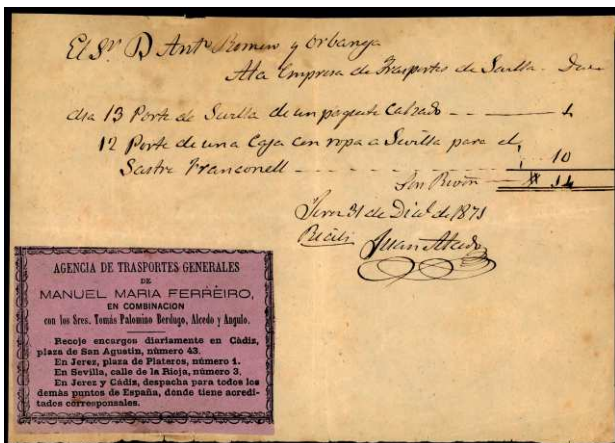 El Sr. D Anto. Romero y Orbanga
A la Empresa de Trasportes de Sevilla. Deve
dia 13 Porte de Sevilla de un paquete Calzado 4
12 Porte de una Caja con ropa a Sevilla para el
Sastre Franconell 10
14
31 de Dice. de 1871
Recibi Juan
AGENCIA DE TRASPORTES GENERALES
DE
MANUEL MARIA FERREIRO,
EN COMBINACION
con los Sres. Tomás Palomino Berdugo, Alcedo y Angulo.
Recoje encargos diariamente en Cádiz,
plaza de San Agustin, número 43.
En Jerez, plaza de Plateros, número 1.
En Sevilla, calle de la Rioja, número 3.
En Jerez y Cádiz, despacha para todos los
demás puntos de España, donde tiene acredi-
tados corresponsales.